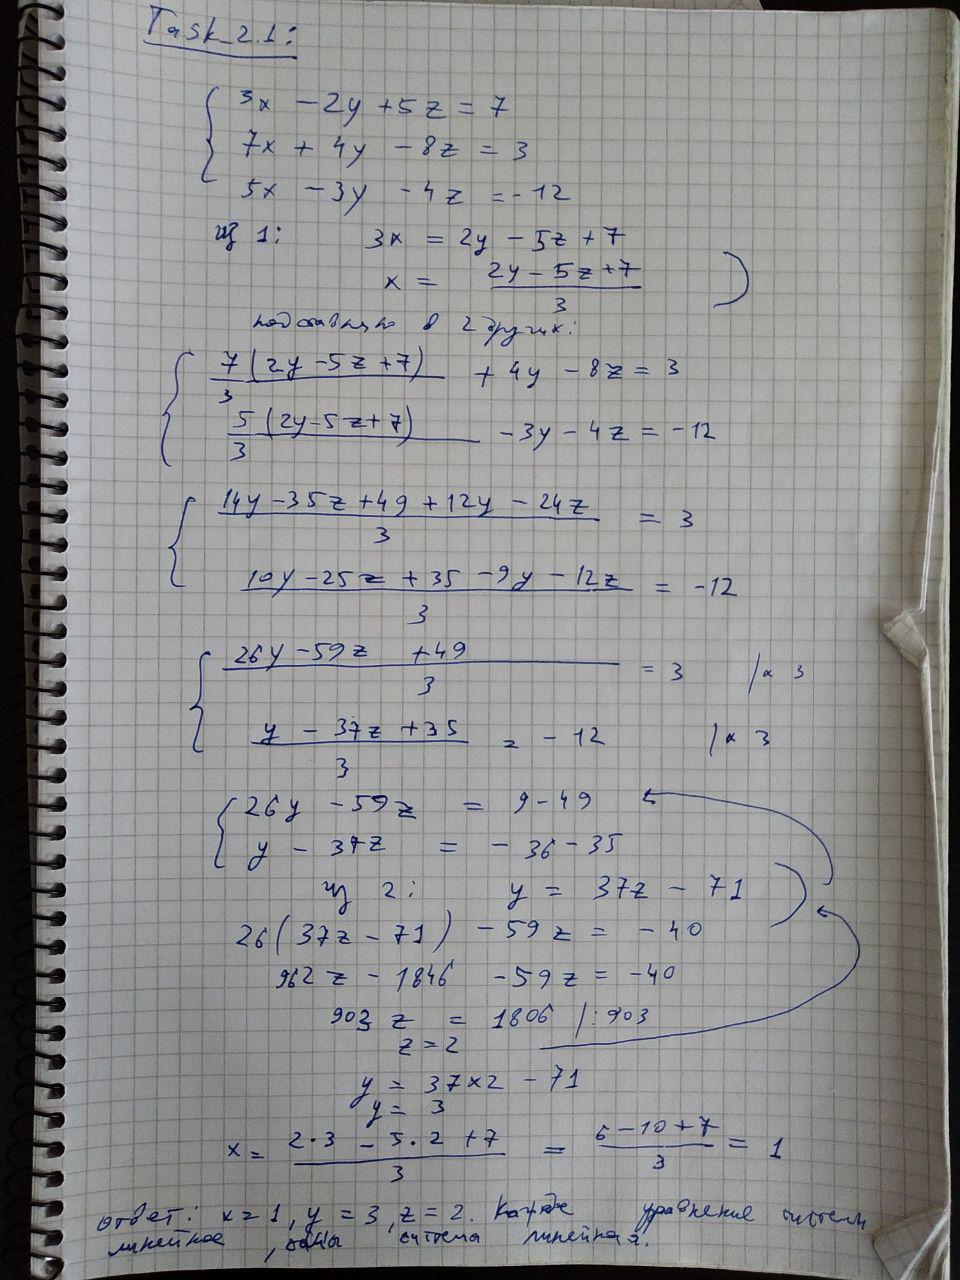 Task 2.1:
3x - 2y + 5z = 7
7x + 4y - 8z = 3
5x - 3y - 4z = -12
из 1: 3x = 2y - 5z + 7
x = (2y - 5z + 7)/3
подставляю в 2 других:
7(2y - 5z + 7)/3 + 4y - 8z = 3
5(2y - 5z + 7)/3 - 3y - 4z = -12
(14y - 35z + 49 + 12y - 24z)/3 = 3
(10y - 25z + 35 - 9y - 12z)/3 = -12
(26y - 59z + 49)/3 = 3 |× 3
(y - 37z + 35)/3 = -12 |× 3
26y - 59z = 9 - 49
y - 37z = -36 - 35
из 2: y = 37z - 71
26(37z - 71) - 59z = -40
962z - 1846 - 59z = -40
903z = 1806 |:903
z = 2
y = 37×2 - 71
y = 3
x = (2·3 - 5·2 + 7)/3 = (6 - 10 + 7)/3 = 1
ответ: x = 1, y = 3, z = 2. уравнение системы
линейное, система линейная.